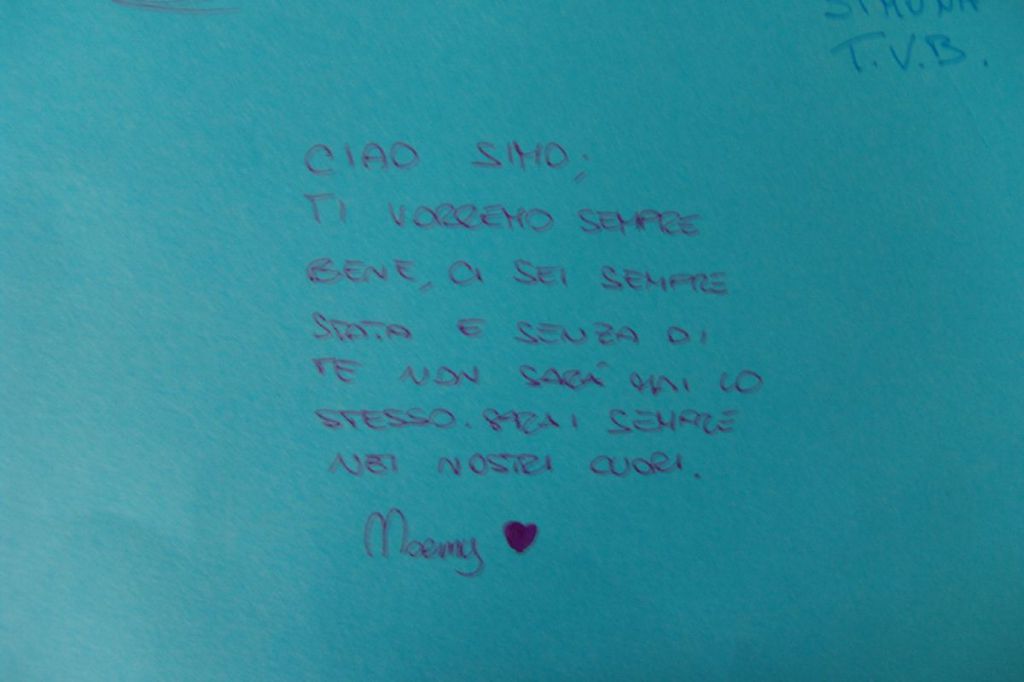 SIMONA
T.V.B.
CIAO SIMO;
TI VORREMO SEMPRE
BENE, CI SEI SEMPRE
STATA E SENZA DI
TE NON SARÀ MAI LO
STESSO. SARAI SEMPRE
NEI NOSTRI CUORI.
Noemy